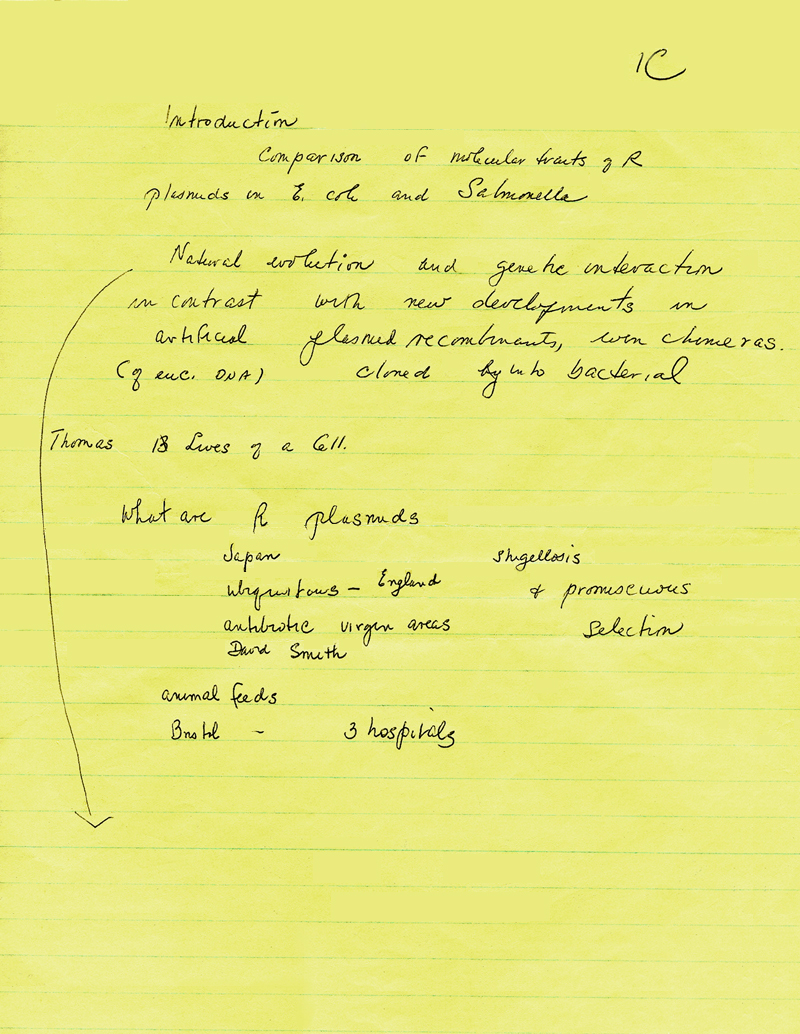 1C
Introduction
Comparison of molecular traits of R
plasmids in E. coli and Salmonella
Natural evolution and genetic interaction
in contrast with new developments in
artificial plasmid recombinants, even chimeras.
(of euc. DNA) cloned by into bacterial
Thomas 18 Lives of a Cell.
What are R plasmids
Japan shigellosis
Ubiquitous - England & promiscuous
antibiotic virgin areas selection
David Smith
animal feeds
Bristol - 3 hospitals